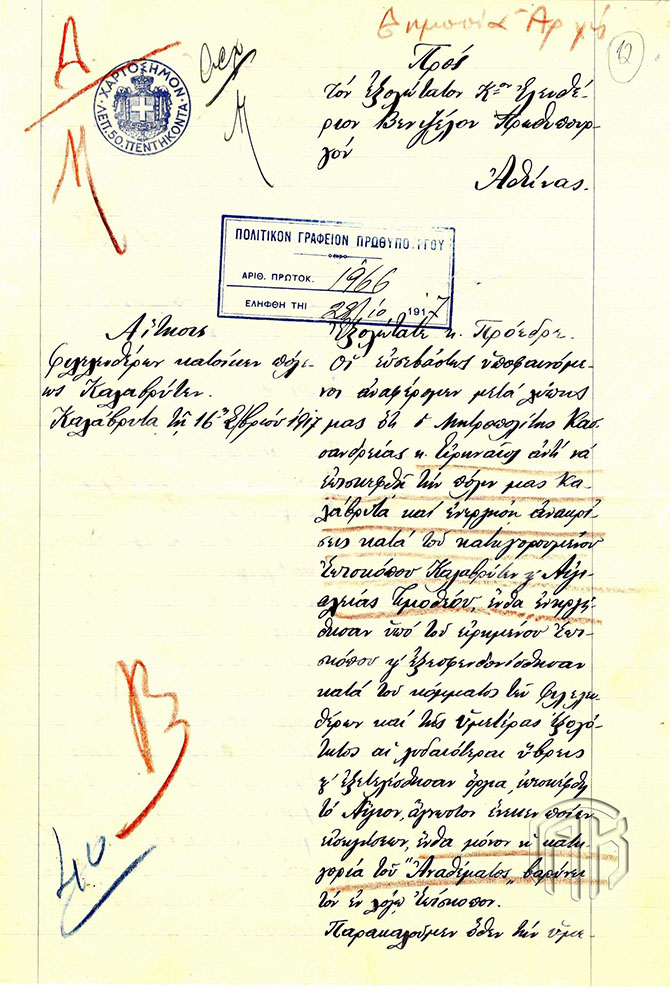 Δημοσία Ἀρχή
12
Α
Μ
Μ
ΧΑΡΤΟΣΗΜΟΝ
ΛΕΠ. 50. ΠΕΝΤΗΚΟΝΤΑ
Πρός
τόν ἐξοχώτατον Κον Ἐλευθέ-
ριον Βενιζέλον Πρωθυπουρ-
γόν
Ἀθήνας.
ΠΟΛΙΤΙΚΟΝ ΓΡΑΦΕΙΟΝ ΠΡΩΘΥΠΟΥΡΓΟΥ
ΑΡΙΘ. ΠΡΩΤΟΚ. 1966
ΕΛΗΦΘΗ ΤΗι 28/10 1917
Αἴτησις
φιλελευθέρων κατοίκων πόλε-
ως Καλαβρύτων.
Καλάβρυτα τῇ 16 8βρίου 1917
Ἐξοχώτατε κ. Πρόεδρε.
Οἱ εὐσεβάστως ὑποφαινόμε-
νοι ἀναφέρομεν μετά λύπης
μας ὅτι ὁ Μητροπολίτης Κασ-
σανδρείας κ. Εἰρηναῖος ἀντί νά
ἐπισκεφθῇ τήν πόλιν μας Κα-
λάβρυτα καί ἐνεργήσῃ ἀνακρί-
σεις κατά τοῦ κατηγορουμένου
Ἐπισκόπου Καλαβρύτων κ' Αἰγι-
αλείας Τιμοθέου, ἔνθα ἐνηργή-
θησαν ὑπό τοῦ εἰρημένου Ἐπι-
σκόπου κ' ἐξεσφενδονίσθησαν
κατά τοῦ κόμματος τῶν Φιλελευ-
θέρων καί τῆς ὑμετέρας ἐξοχό-
τητος αἱ χυδαιότεραι ὕβρεις
κ' ἐξετελέσθησαν ὄργια, ἐπεσκέφθη
τό Αἴγιον, ἄγνωστον ἕνεκεν ποίων
εἰσηγήσεων, ἔνθα μόνον ἡ κατη-
γορία τοῦ "Ἀναθέματος" βαρύνει
τόν ἐν λόγῳ Ἐπίσκοπον.
Παρακαλοῦμεν ὅθεν τήν ὑμε-
Β
40